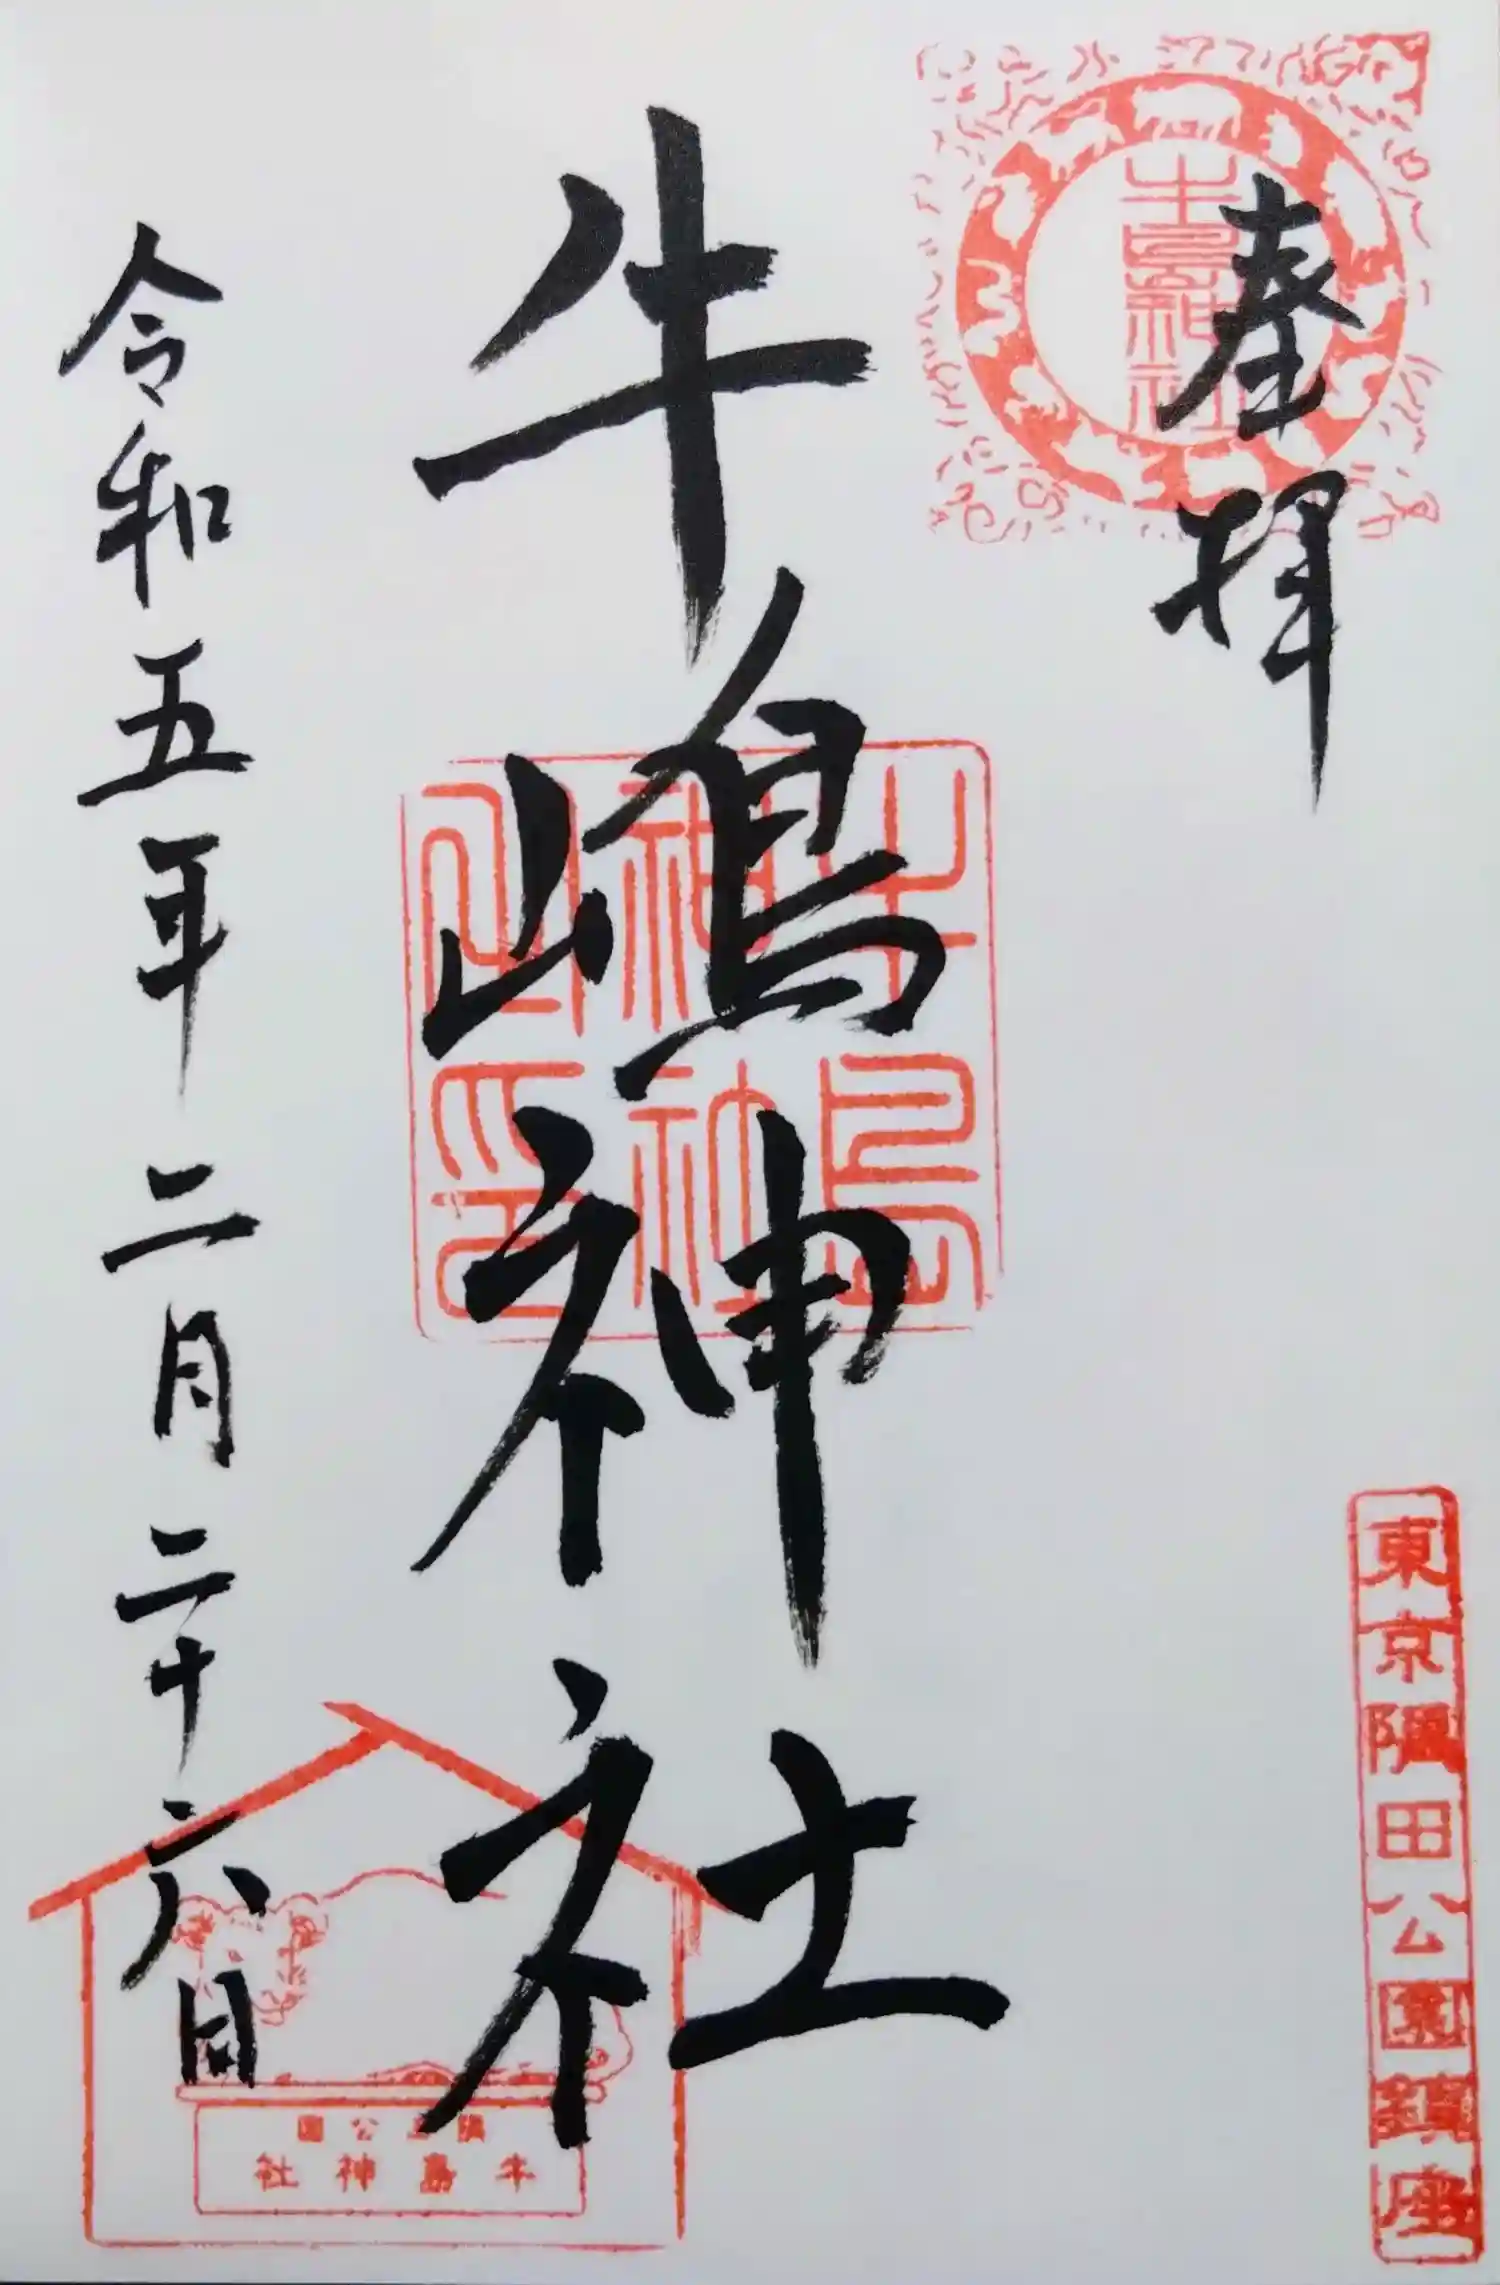 奉拝
牛嶋神社
令和五年二月二十六日
牛嶋神社
牛嶋
神社
之印
東京隅田公園鎮座
隅田公園
牛島神社